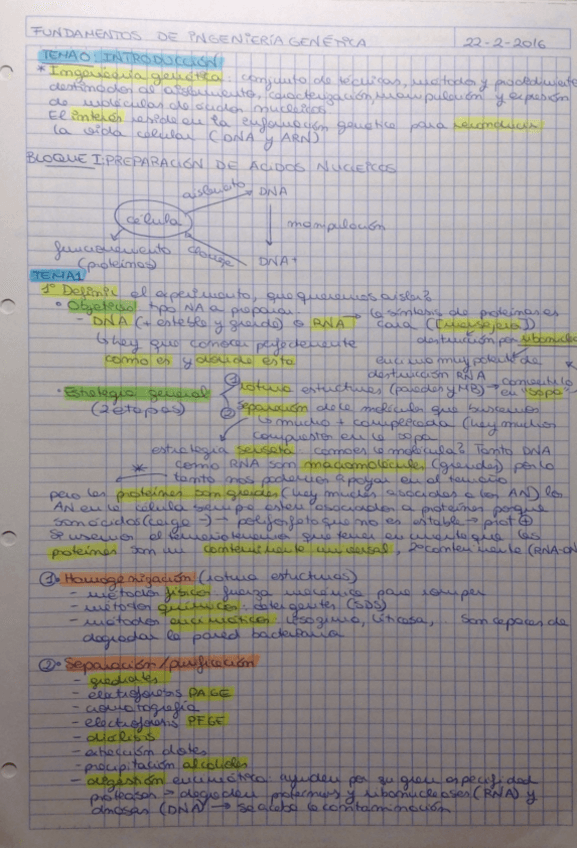 FUNDAMENTOS DE INGENIERÍA GENÉTICA 22-2-2016
TEMA 0: INTRODUCCIÓN
* Ingeniería genética: conjunto de técnicas, métodos y procedimientos
destinados al aislamiento, caracterización, manipulación y expresión
de moléculas de ácidos nucleicos
El interés reside en la información genética para
la vida celular (DNA y ARN)
BLOQUE I: PREPARACIÓN DE ACIDOS NUCLEICOS
DNA
célula
manipulación
funcionamiento
(proteínas)
DNA+
TEMA 1
1º Definir el experimento, que queremos aislar?
• Objetivo: tipo NA a preparar
- DNA (+ estable y grande) o RNA → la síntesis de proteínas es cara (mensajero)
destrucción por
↳ hay que conocer perfectamente
como es y dónde está
enzima muy potente de
destrucción RNA
• Estrategia general
(2 etapas)
① rotura estructuras (paredes y MB) → en "sopa"
② Separación de la molécula que buscamos
↳ mucho + complicada (hay muchos
compuestos en la sopa
estrategia sensata: como es la molécula? Tanto DNA
* como RNA son macromoléculas (grandes) por lo
tanto nos podemos apoyar en el tamaño
pero las proteínas son grandes (hay muchas asociadas a los AN) los
AN en la célula siempre están asociados a proteínas porque
son ácidos (carga -) → polifosfato que no es estable → prot ⊕
Si usamos el tamaño tenemos que tener en cuenta que las
proteínas son un contaminante universal, 2º contaminante (RNA-
① • Homogenización (rotura estructuras)
- métodos físicos: fuerza mecánica para romper
- métodos químicos: detergentes (SDS)
- métodos enzimáticos: lisozima, liticasa, ... Son capaces de
degradar la pared bacteriana
② • Separación/purificación
- gradientes
- electroforesis PAGE
- cromatografía
- electroforesis PFGE
- diálisis
- precipitación alcoholes
- digestión enzimática: ayudan por su gran especificidad
proteasas → degradan proteínas y ribonucleasas (RNA) y
dnasas (DNA) → se acaba la contaminación